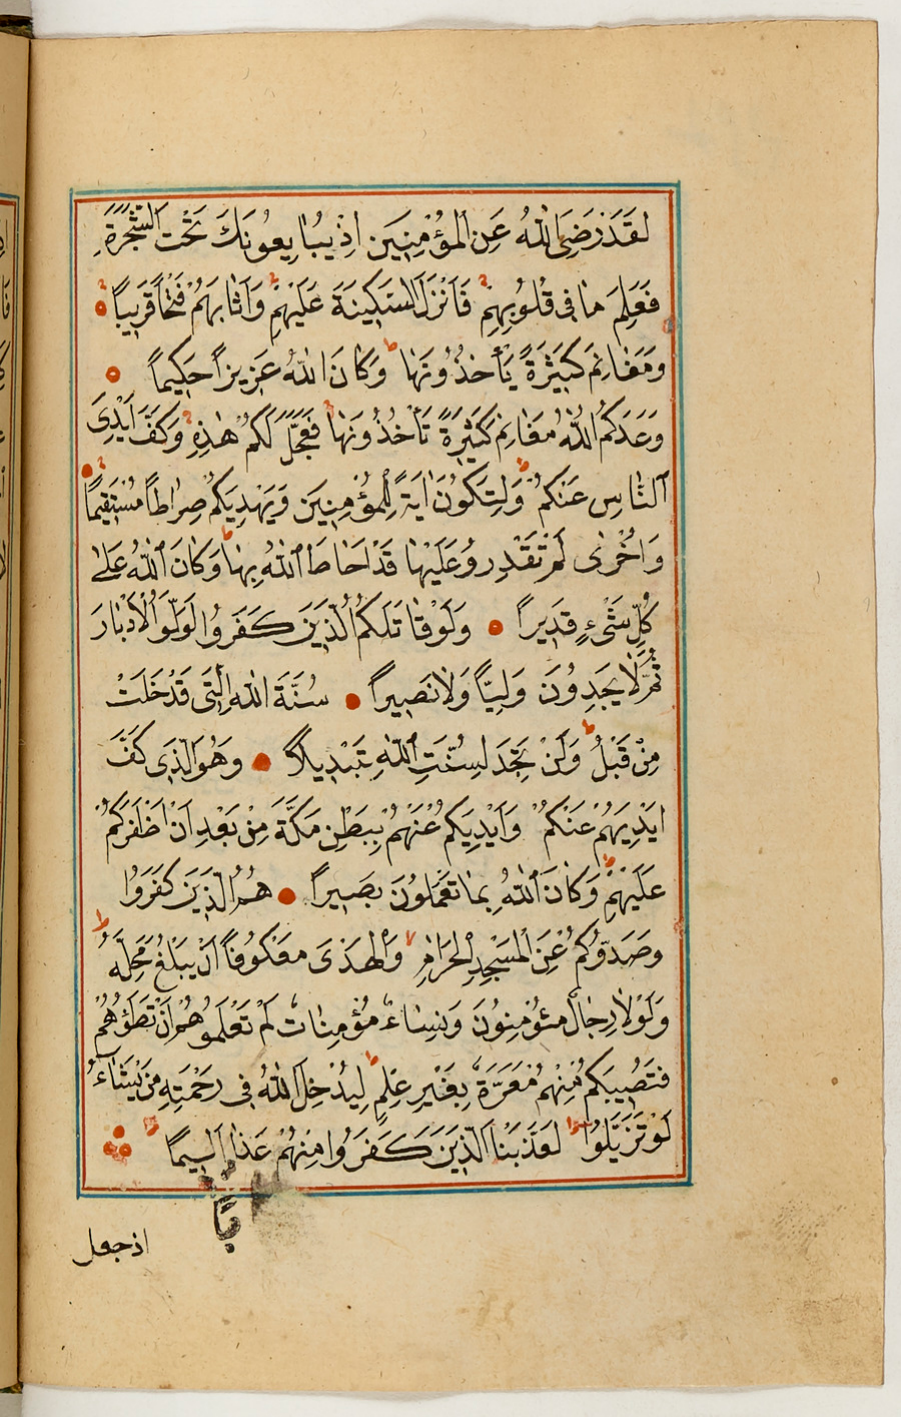 لَقَدْ رَضِيَ اللّٰهُ عَنِ الْمُؤْمِنِينَ اِذْ يُبَايِعُونَكَ تَحْتَ الشَّجَرَةِ
فَعَلِمَ مَا فِى قُلُوبِهِمْ فَاَنْزَلَ السَّكِينَةَ عَلَيْهِمْ وَاَثَابَهُمْ فَتْحًا قَرِيبًا
وَمَغَانِمَ كَثِيرَةً يَأْخُذُونَهَا وَكَانَ اللّٰهُ عَزِيزًا حَكِيمًا
وَعَدَكُمُ اللّٰهُ مَغَانِمَ كَثِيرَةً تَأْخُذُونَهَا فَعَجَّلَ لَكُمْ هٰذِهِ وَكَفَّ اَيْدِىَ
النَّاسِ عَنْكُمْ وَلِتَكُونَ اٰيَةً لِلْمُؤْمِنِينَ وَيَهْدِيَكُمْ صِرَاطًا مُسْتَقِيمًا
وَاُخْرٰى لَمْ تَقْدِرُوْ عَلَيْهَا قَدْ اَحَاطَ اللّٰهُ بِهَا وَكَانَ اللّٰهُ عَلٰى
كُلِّ شَىْءٍ قَدِيرًا وَلَوْ قَاتَلَكُمُ الَّذِينَ كَفَرُوا لَوَلَّوُا الْاَدْبَارَ
ثُمَّ لَا يَجِدُونَ وَلِيًّا وَلَا نَصِيرًا سُنَّةَ اللّٰهِ الَّتِى قَدْ خَلَتْ
مِنْ قَبْلُ وَلَنْ تَجِدَ لِسُنَّتِ اللّٰهِ تَبْدِيلًا وَهُوَ الَّذِى كَفَّ
اَيْدِيَهُمْ عَنْكُمْ وَاَيْدِيَكُمْ عَنْهُمْ بِبَطْنِ مَكَّةَ مِنْ بَعْدِ اَنْ اَظْفَرَكُمْ
عَلَيْهِمْ وَكَانَ اللّٰهُ بِمَا تَعْمَلُونَ بَصِيرًا هُمُ الَّذِينَ كَفَرُوا
وَصَدُّوكُمْ عَنِ الْمَسْجِدِ الْحَرَامِ وَالْهَدْىَ مَعْكُوفًا اَنْ يَبْلُغَ مَحِلَّهُ
وَلَوْلَا رِجَالٌ مُؤْمِنُونَ وَنِسَاءٌ مُؤْمِنَاتٌ لَمْ تَعْلَمُوهُمْ اَنْ تَطَؤُهُمْ
فَتُصِيبَكُمْ مِنْهُمْ مَعَرَّةٌ بِغَيْرِ عِلْمٍ لِيُدْخِلَ اللّٰهُ فِى رَحْمَتِهِ مَنْ يَشَاءُ
لَوْ تَزَيَّلُوا لَعَذَّبْنَا الَّذِينَ كَفَرُوا مِنْهُمْ عَذَابًا اَلِيمًا
اذ جعل